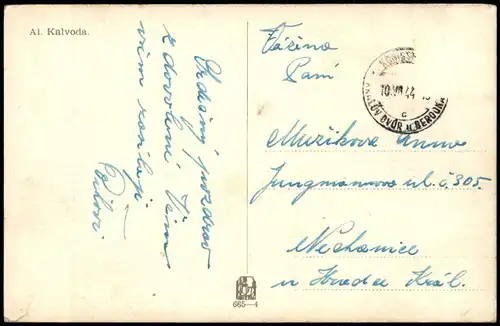 Al. Kalvoda.
Srdečný pozdrav
z dovolené Vám
všem zasílají
Vážená
Paní
KRÁLŮV DVŮR u BEROUNA
10.VII.44
c
Muzikova Anna
Jungmannova ul. č. 305.
Nechanice
u Hradce Král.
665—4